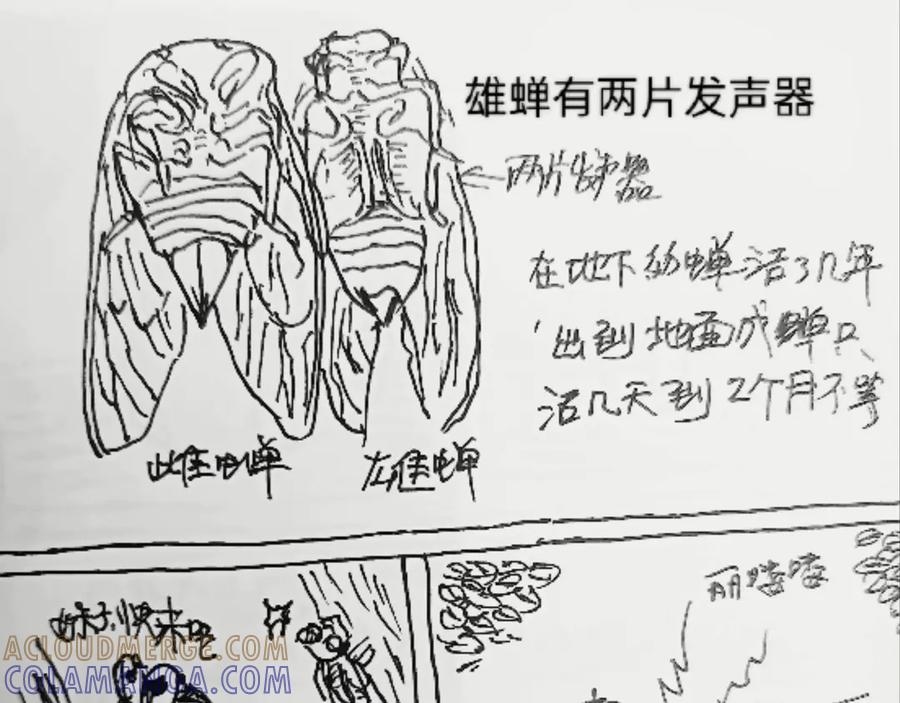 雄蝉有两片发声器
两片发声器
在地下幼蝉活了几年
出到地面成蝉只
活几天到2个月不等
雌蝉 雄蝉
妹子快来吧
ACLOUDMERGE.COM
COLAMANGA.COM